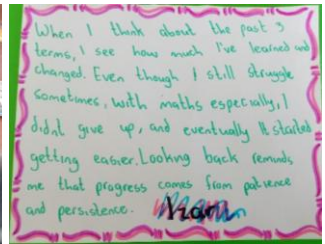 When I think about the past 3
terms, I see how much I've learned and
changed. Even though I still struggle
sometimes, with maths especially, I
didnt give up, and eventually It started
getting easier. Looking back reminds
me that progress comes from patience
and persistence.